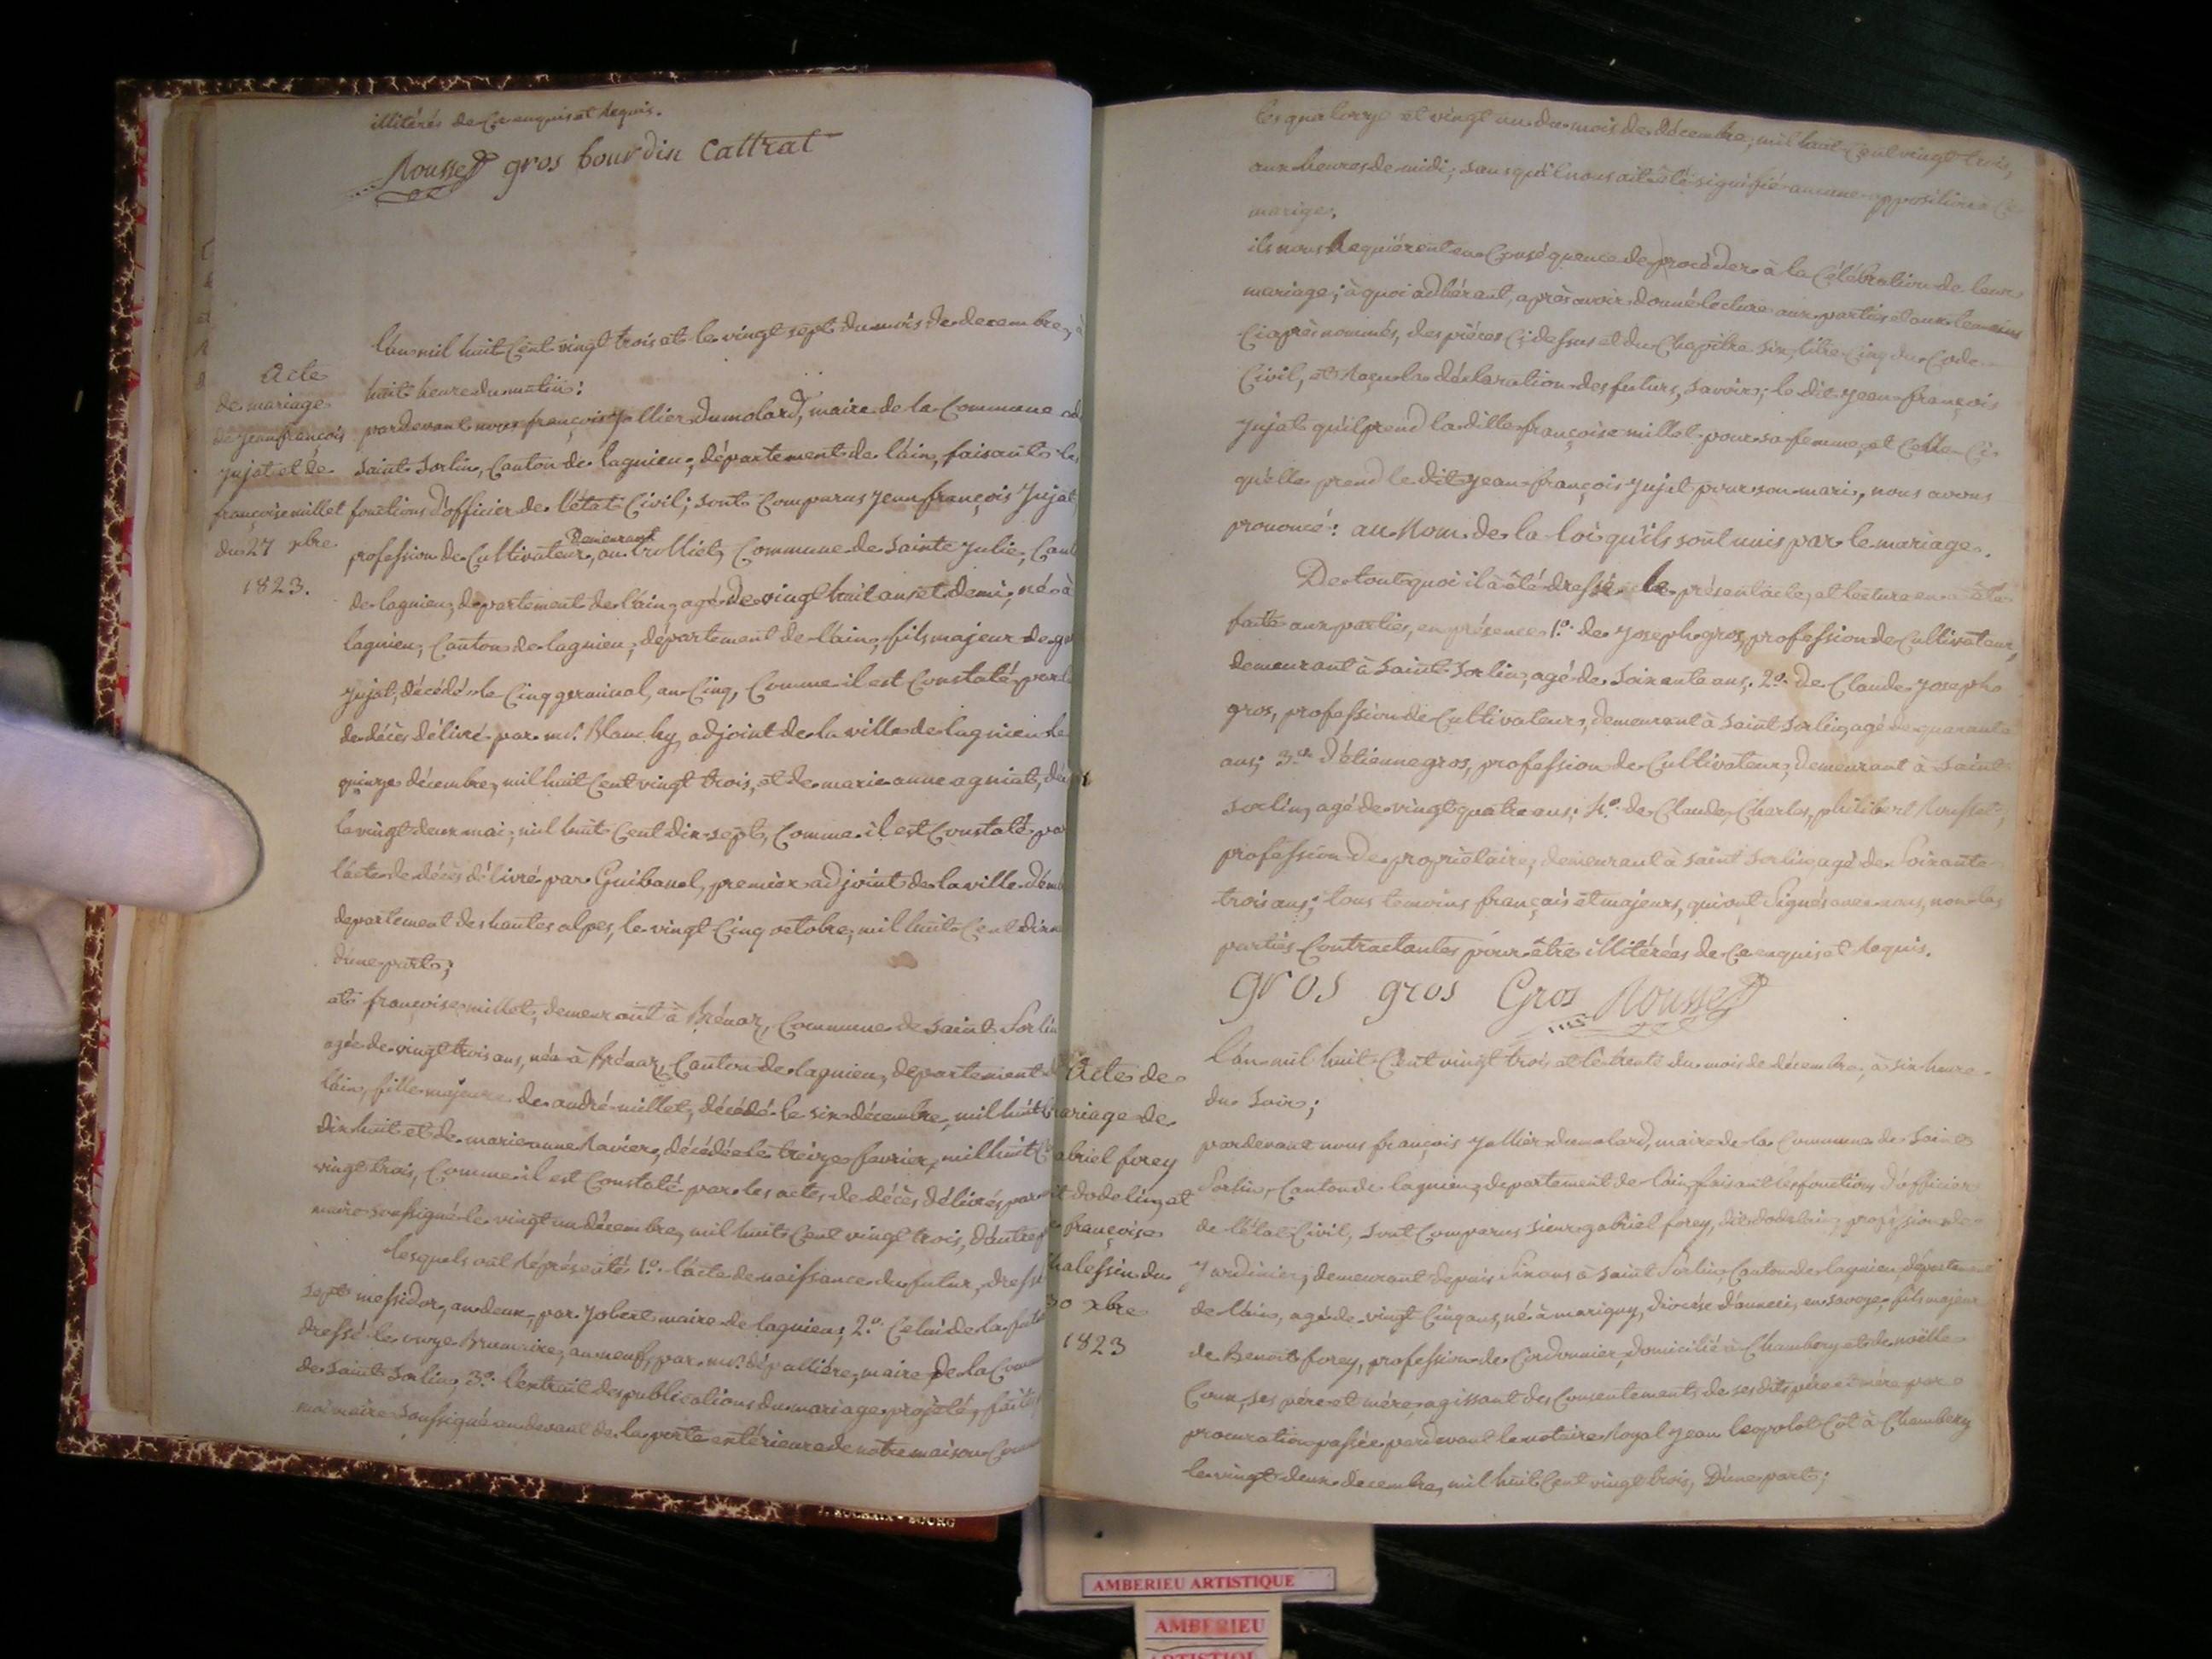 illitérés de ce enquis et Requis.
Rousset gros bourdin Cattrat
Acte
de mariage
de jean françois
jujat et de
françoise millet
du 27 xbre
1823.
l'an mil huit Cent vingt trois et le vingt sept du mois de decembre, à
huit heure du matin;
pardevant nous françois jullier dumolard, maire de la Commune de
saint Sorlin, Canton de lagnieu, département de l'ain, faisant les
fonctions d'officier de l'état Civil; sont Comparus jean françois jujat
profession de Cultivateur, Demeurant au trolliet, Commune de Sainte julie, Cant
de lagnieu, département de l'ain, agé de vingt huit ans et demi, né à
lagnieu, Canton de lagnieu, département de l'ain, fils majeur de
jujat, décédé le Cinq germinal, an Cinq, Comme il est Constaté par
de décès délivré par mr. Blanchy, adjoint de la ville de lagnieu le
quinze décembre, mil huit Cent vingt trois, et de marie anne agniat,
le vingt deux mai, mil huit Cent dix sept, Comme il est Constaté par
l'acte de décès délivré par Guibanel, premier adjoint de la ville
departement des hautes alpes, le vingt Cinq octobre, mil huit Cent
d'une part;
et françoise millet, demeurant à Brénaz, Commune de saint Sorlin
agée de vingt trois ans, née à Brénaz, Canton de lagnieu, departement de
l'ain, fille majeure de andré millet, décédé le six décembre, mil huit
dix huit et de marie anne Ravier, décédée le treize fevrier, mil huit
vingt trois, Comme il est Constaté par les actes de décès délivrés par
maire soussigné le vingt un décembre, mil huit Cent vingt trois, d'autre
lesquels ont Réprésenté 1.º l'acte de naissance du futur, dressé
sept messidor, an deux, par jobert maire de lagnieu; 2.º Celui de la
dressé le onze Brumaire, an neuf, par mr. maire de la
de saint Sorlin; 3.º l'extrait des publications du mariage projeté, faites
moi maire soussigné au devant de la porte extérieure de notre maison
les quatorze et vingt un du mois de décembre, mil huit Cent vingt trois,
aux heures de midi; sans qu'il nous ait été signifié aucune opposition
mariage.
ils nous Requiérent en Conséquence de procéder à la Célébration de leur
mariage; à quoi adhérant, après avoir donné lecture aux parties et aux temoins
Ciaprès nommés, des pièces Ci dessus et du Chapitre six, titre Cinq du Code
Civil, et Reçu la déclaration des futurs, savoir; le dit jean françois
jujat qu'il prend la ditte françoise millet pour sa femme, et Celle Ci
qu'elle prend le dit jean françois jujat pour son mari, nous avons
prononcé: au Nom de la loi qu'ils sont unis par le mariage.
De tout quoi il a été dressé le présent acte, et lecture en a été
faite aux parties, en présence 1.º de joseph gros, profession de Cultivateur,
demeurant à saint Sorlin, agé de soixante ans; 2.º De Claude joseph
gros, profession de Cultivateur, demeurant à saint Sorlin, agé de quarante
ans; 3.º d'étienne gros, profession de Cultivateur, demeurant à saint
sorlin, agé de vingt quatre ans; 4.º de Claude, Charles, philibert Rousset,
profession de propriétaire, demeurant à saint Sorlin, agé de Soixante
trois ans; tous temoins français et majeurs, qui ont signés avec nous, non les
parties Contractantes pour être illitérées de Ce enquis et Requis.
gros gros Gros Rousset
Acte de
mariage de
gabriel forey
dit dodelin, et
françoise
du
30 xbre
1823
l'an mil huit Cent vingt trois et le trente du mois de décembre, à six heure
du soir;
pardevant nous françois jullier dumolard, maire de la Commune de saint
Sorlin, Canton de lagnieu, departement de l'ain, faisant les fonctions d'officier
de l'état Civil, sont Comparus sieur gabriel forey, dit dodelin, profession de
jardinier, demeurant depuis six ans à saint Sorlin, Canton de lagnieu, département
de l'ain, agé de vingt Cinq ans, né à marigny, diocése d'anneci, en savoye, fils majeur
de Benoit forey, profession de Cordonnier, domicilié à Chambery et de noëlle
ses père et mère, agissant des Consentements de ses dits père et mère par
procuration passée pardevant le notaire Royal jean leopolot Cot à Chambery
le vingt deux decembre, mil huit Cent vingt trois, D'une part;
AMBERIEU ARTISTIQUE
AMBERIEU
ARTISTIQUE